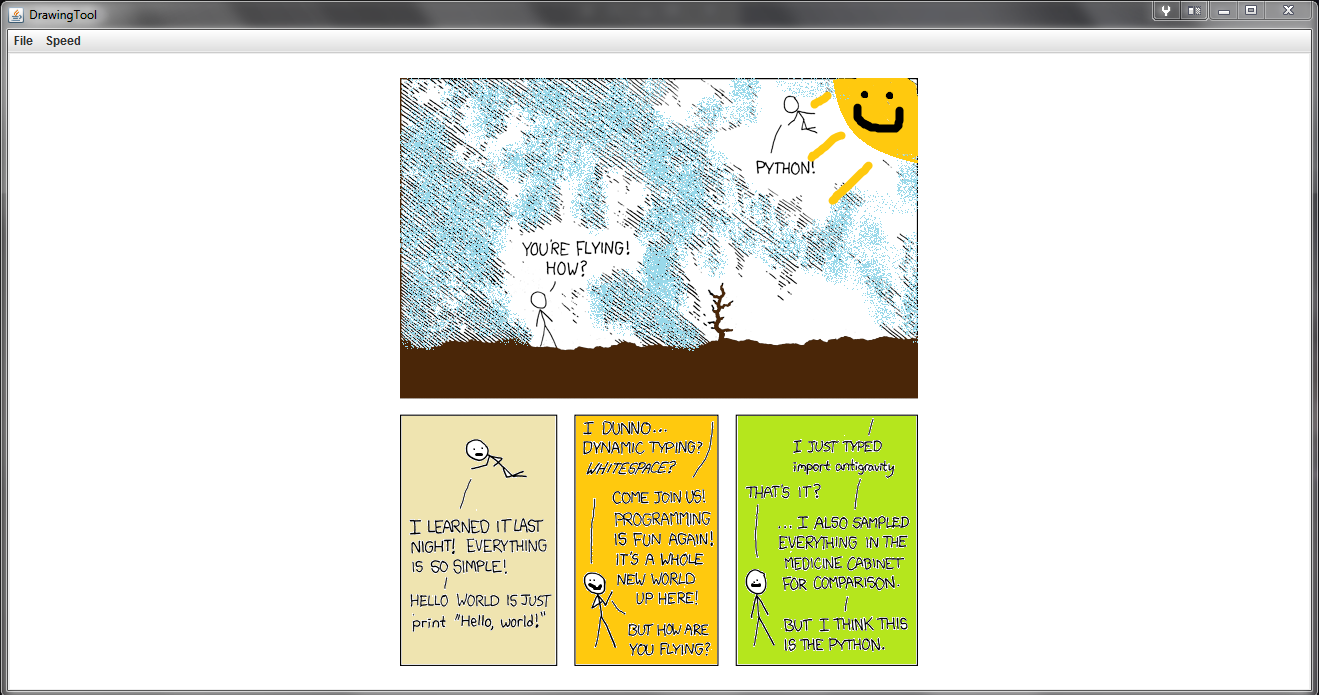 DrawingTool
File Speed
YOU'RE FLYING!
HOW?
PYTHON!
I LEARNED IT LAST
NIGHT! EVERYTHING
IS SO SIMPLE!
HELLO WORLD IS JUST
print "Hello, world!"
I DUNNO...
DYNAMIC TYPING?
WHITESPACE?
COME JOIN US!
PROGRAMMING
IS FUN AGAIN!
IT'S A WHOLE
NEW WORLD
UP HERE!
BUT HOW ARE
YOU FLYING?
I JUST TYPED
import antigravity
THAT'S IT?
... I ALSO SAMPLED
EVERYTHING IN THE
MEDICINE CABINET
FOR COMPARISON.
BUT I THINK THIS
IS THE PYTHON.